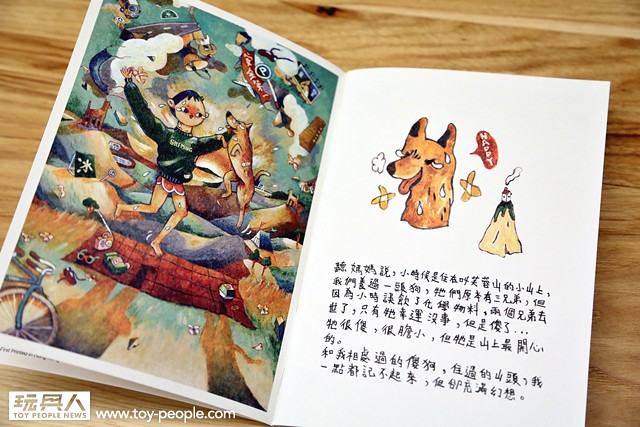 HAPPY
聽媽媽說，小時侯是住在叫芙蓉山的小山上，
我們養過一頭狗，牠們原本有三兄弟，但
因為小時誤飲了化學物料，兩個兄弟去
世了，只有牠幸運沒事，但是傻了…
牠很傻，很膽小，但牠是山上最開心
的。
和我相處過的傻狗，住過的山頭，我
一點都記不起來，但卻充滿幻想。
First Printed in Hong
玩具人
TOY PEOPLE NEWS
www.toy-people.com